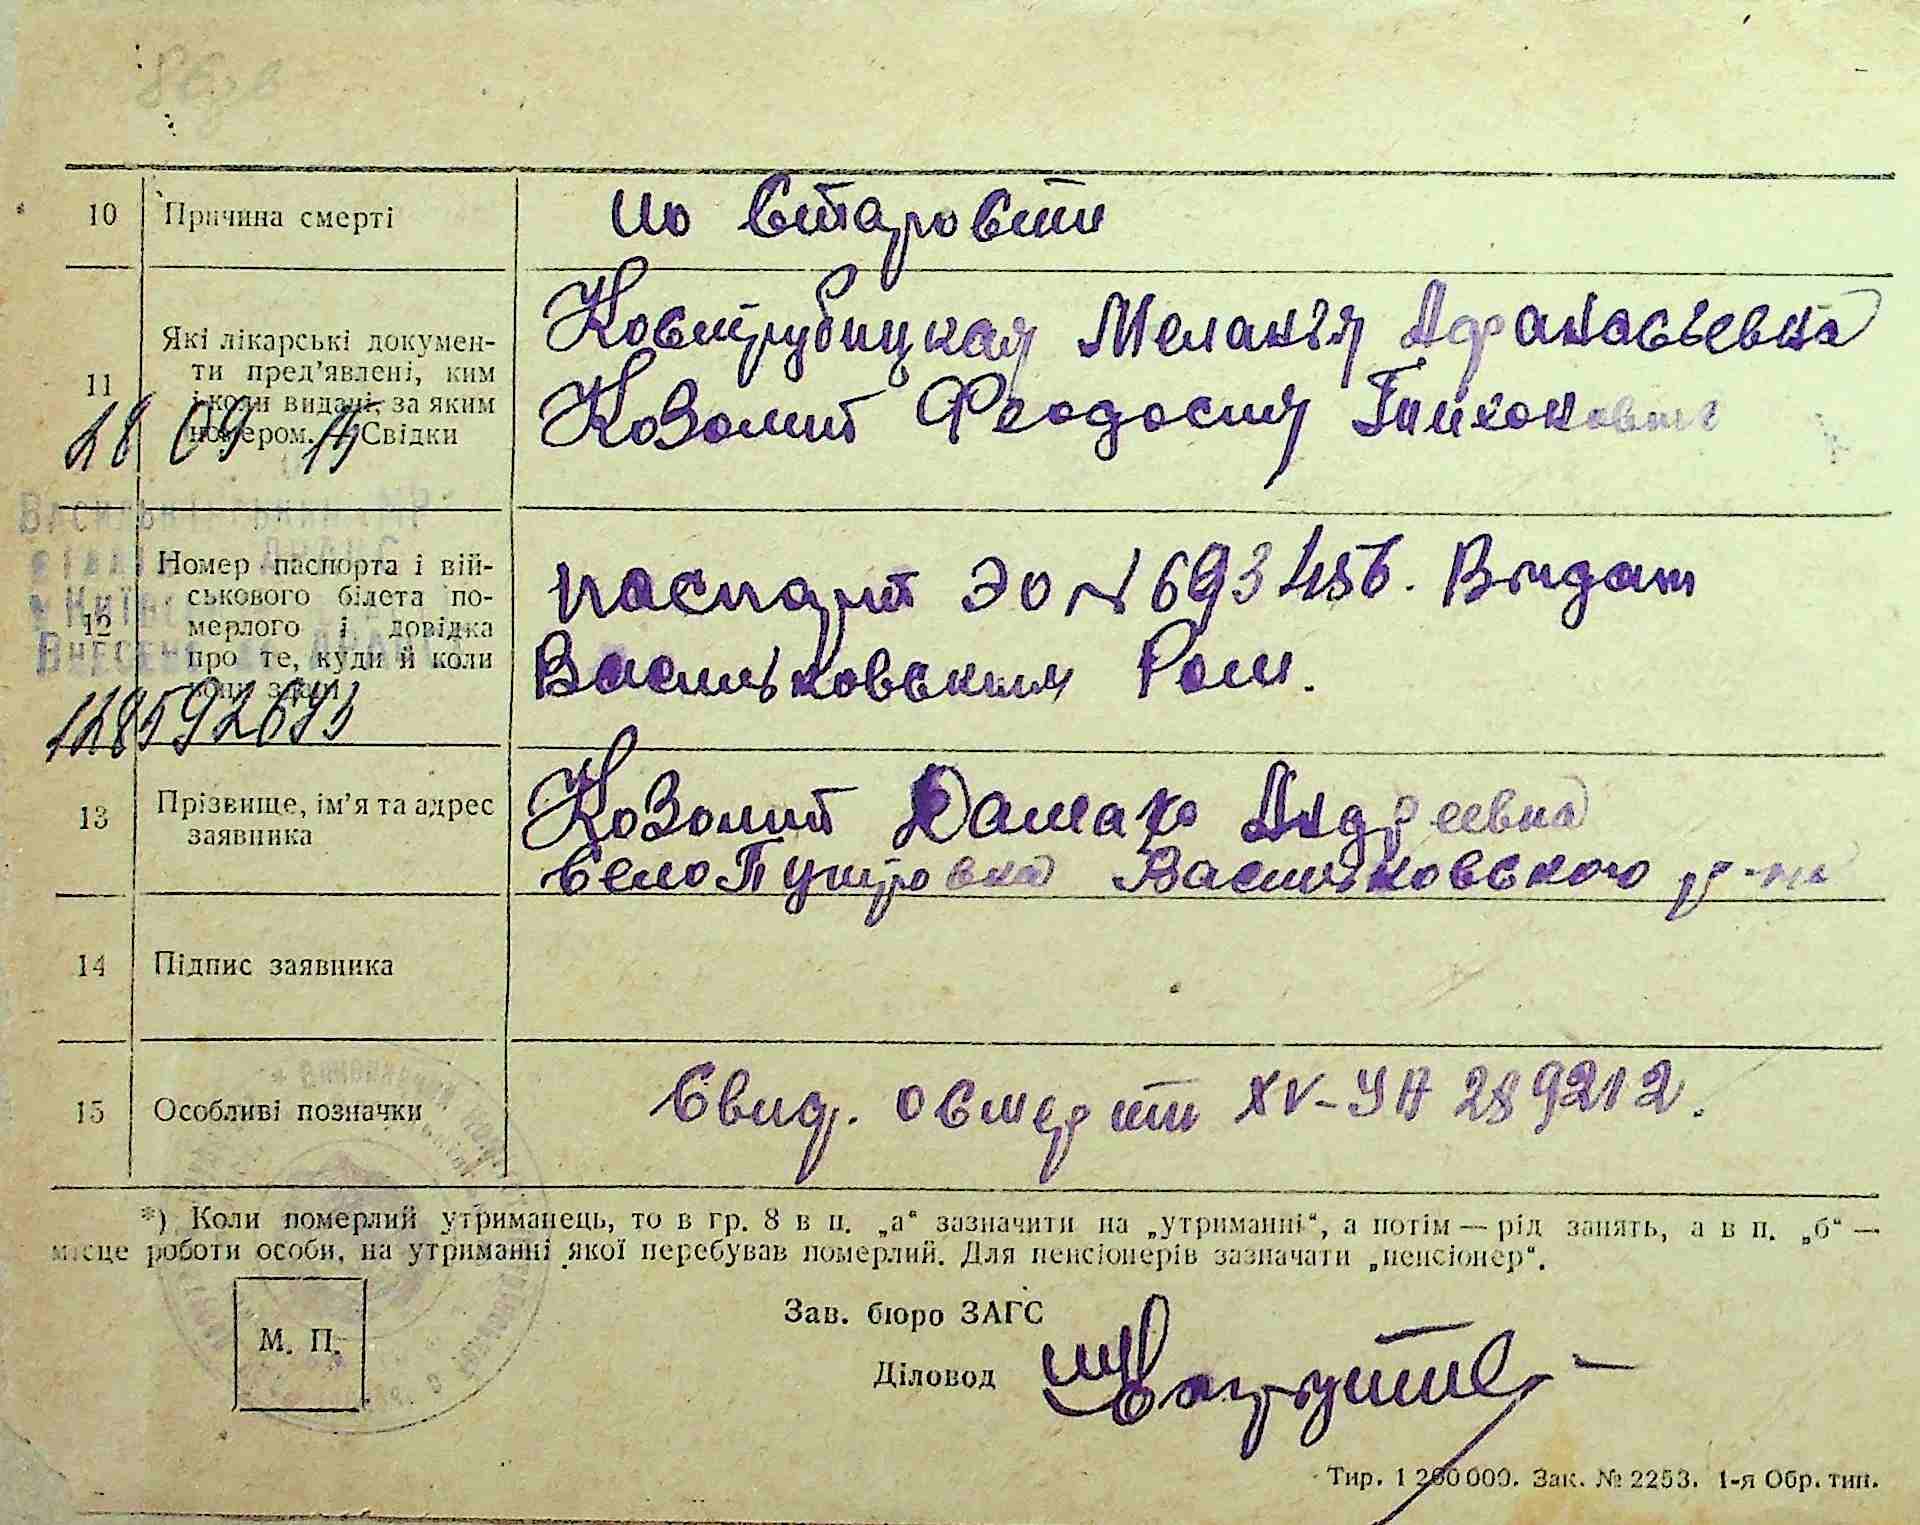 10 Причина смерті
по старости
11 Які лікарські докумен-
ти пред'явлені, ким
і коли видані, за яким
номером. — Свідки
Костирубицкая Мелания Афанасьевна
Коваленко Феодосия Тихоновна
28 09
12 Номер паспорта і вій-
ськового білета по-
мерлого і довідка
про те, куди й коли
вони здані
паспорт ЭО № 693456. Выдан
Васильковским Ром.
128592673
13 Прізвище, ім'я та адрес
заявника
Андреевна
село Васильковского р-на
14 Підпис заявника
15 Особливі позначки
Свид. о смерти XV-УН 289212.
*) Коли померлий утриманець, то в гр. 8 в п. „а“ зазначити на „утриманні“, а потім — рід занять, а в п. „б“ —
місце роботи особи, на утриманні якої перебував померлий. Для пенсіонерів зазначати „пенсіонер“.
М. П.
Зав. бюро ЗАГС
Діловод
Тир. 1 200 000. Зак. № 2253. 1-я Обр. тип.